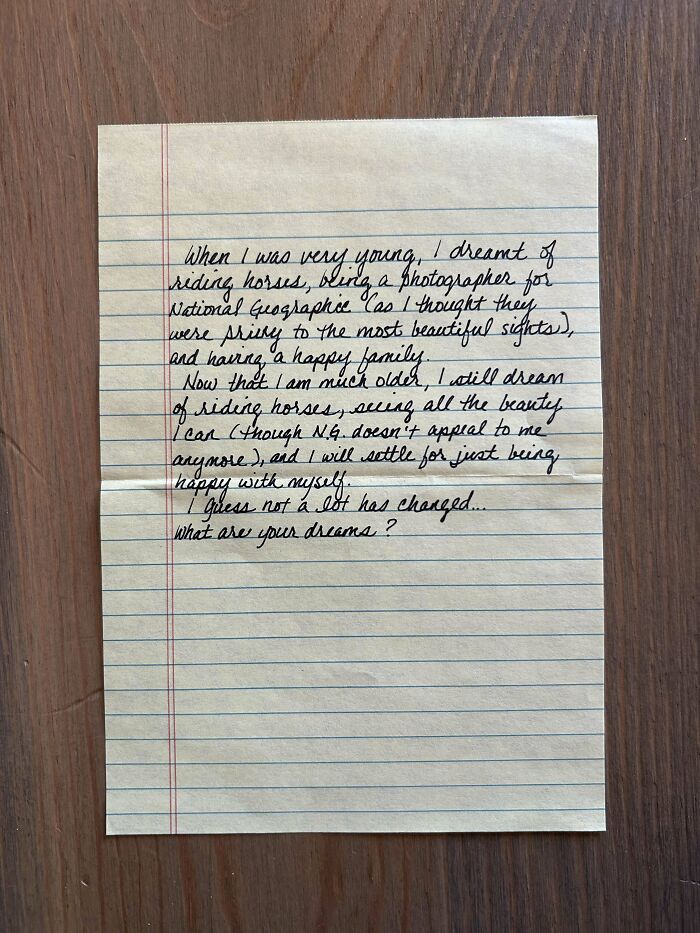 When I was very young, I dreamt of
riding horses, being a photographer for
National Geographic (as I thought they
were privy to the most beautiful sights),
and having a happy family.
Now that I am much older, I still dream
of riding horses, seeing all the beauty
I can (though N.G. doesn't appeal to me
anymore), and I will settle for just being
happy with myself.
I guess not a lot has changed...
What are your dreams?